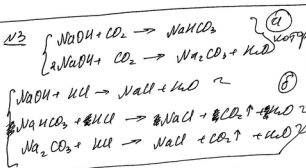 №3 NaOH + CO₂ → NaHCO₃ а
2NaOH + CO₂ → Na₂CO₃ + H₂O
NaOH + HCl → NaCl + H₂O б
NaHCO₃ + HCl → NaCl + CO₂↑ + H₂O
Na₂CO₃ + HCl → NaCl + CO₂↑ + H₂O